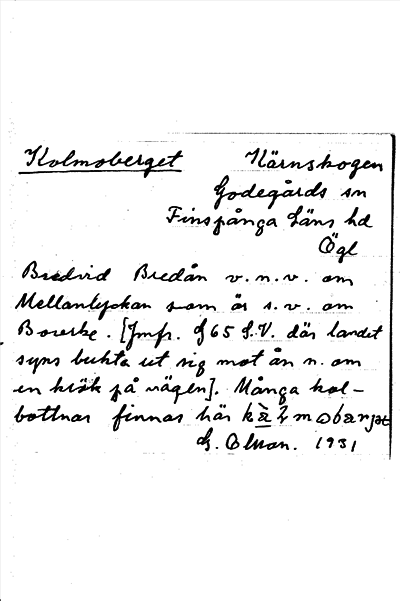 Kolmoberget Kärnskogen
Godegårds sn
Finspånga läns hd
Ögl
Bredvid Bredån v.n.v. om
Mellanlyckan som är s.v. om
Boverke. [Jmfr. G65 S.V. där landet
syns bukta ut sig mot ån n. om
en krök på vägen]. Många kol-
bottnar finnas här
G. Olson. 1931